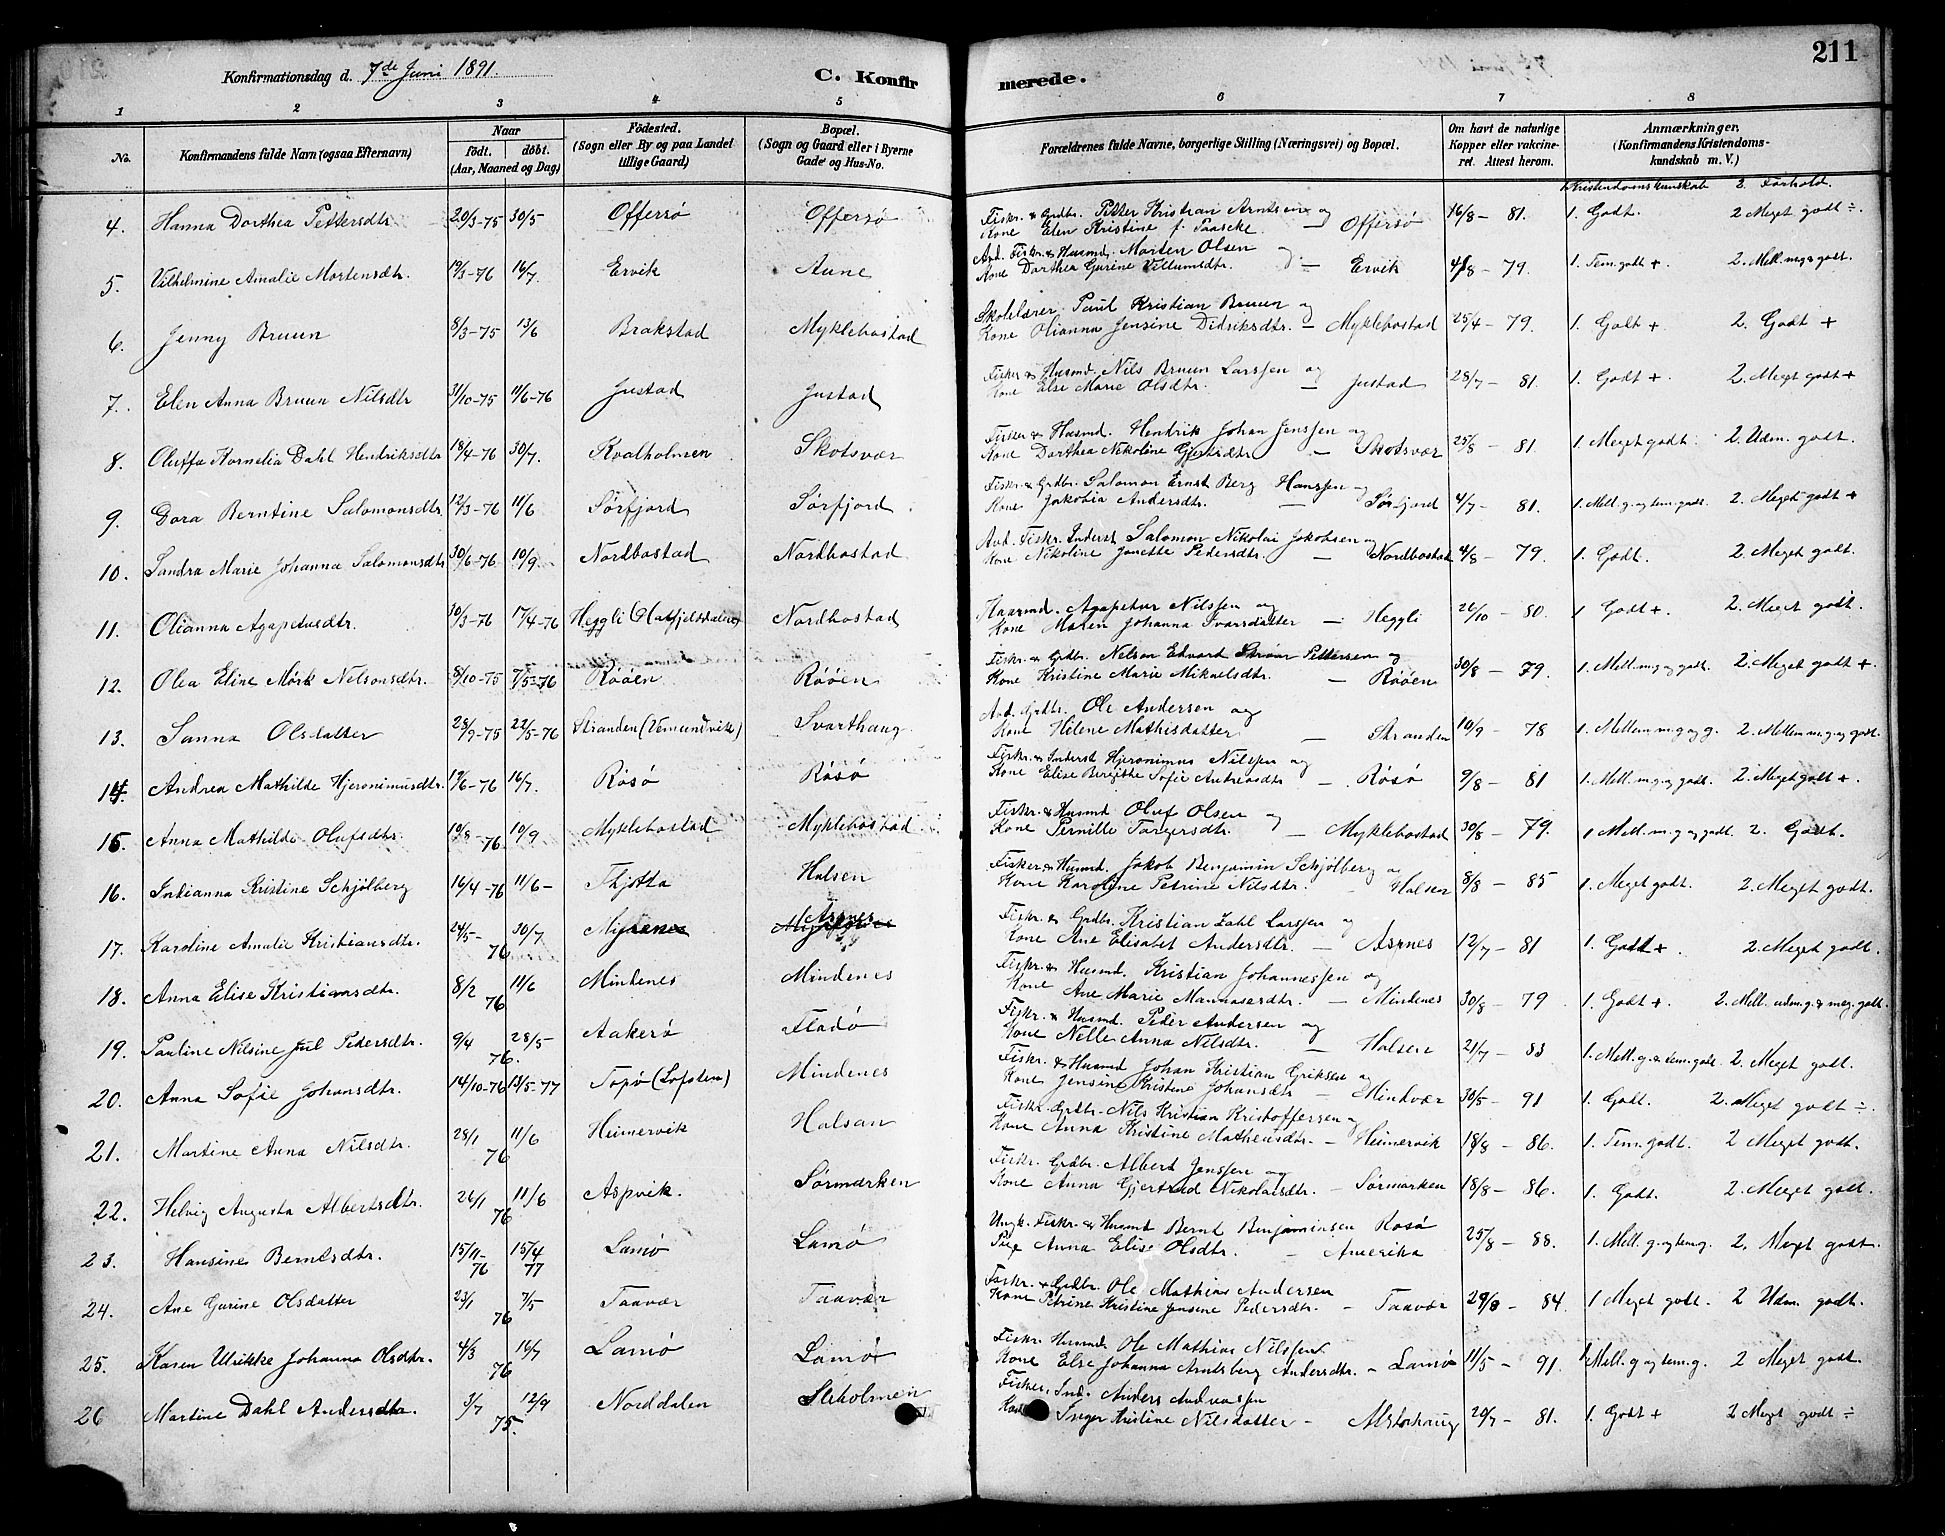 211
Konfirmationsdag d. 7de Juni 1891.
C. Konfirmerede.
1 2 3 4 5 6 7 8
No.
Konfirmandens fulde Navn (ogsaa Efternavn)
Naar
födt. döbt.
(Aar, Maaned og Dag)
Födested.
(Sogn eller By og paa Landet
tillige Gaard)
Bopæl.
(Sogn og Gaard eller i Byerne
Gade og Hus-No.
Forældrenes fulde Navne, borgerlige Stilling (Næringsvei) og Bopæl.
Om havt de naturlige
Kopper eller vakcine-
ret. Attest herom.
Anmærkninger.
(Konfirmandens Kristendoms-
kundskab m. V.)
Kristendomskundskab 2. Forhold.
4. Hanna Dorthea Pettersdtr. 20/3-75 30/5 Offersø Offersø Fiskr. & Grdbr. Petter Kristian Arntsen og
Kone Elen Kristine f. Paascke — Offersø 16/8 - 81. 1. Godt. 2 Meget godt ÷.
5. Vilhelmine Amalie Mortensdtr. 19/3-76 16/7. Ervik Aune Arb. Fiskr. & Husmd. Morten Olsen og
Kone Dorthea Gurine Villumsdtr. — Ervik 4/8 - 79. 1. Tem. godt + 2. Mell. meg. & godt.
6. Jenny Bruun 8/3-75 13/6 Brakstad Myklebostad Skolelærer Paul Kristian Bruun og
Kone Olianna Jensine Didriksdtr. — Myklebostad 25/4 - 79. 1. Godt + 2. Godt +
7. Elen Anna Bruun Nilsdtr 31/10-75 11/6-76 Justad Justad Fisker & Husmd. Nils Bruun Larssen og
Kone Else Marie Olsdtr. — Justad 28/7 - 81. 1. Godt +. 2. Meget godt +
8. Oluffa Kornelia Dahl Hendriksdtr 18/4-76 30/7. Kvalholmen Skotsvær Fisker & Husmd. Hendrik Johan Jenssen og
Kone Dorthea Nikoline Gjertsdtr — Skotsvær 25/8 - 81 1. Meget godt. 2. Udm. godt.
9. Dora Berntine Salomonsdtr. 12/3-76 11/6 Sørfjord Sørfjord Fiskr. & Grdbr. Salomon Ernst Berg Hanssen og
Kone Jakobia Andersdtr. — Sørfjord 4/7 - 81. 1. Mell. g. og tem. godt. 2. Meget godt +
10. Sandra Marie Johanna Salomonsdtr 30/6-76 10/9. Nordbostad Nordbostad Arb. Fiskr. Inderst Salomon Nikolai Jakobsen og
Kone Nikoline Janette Pedersdtr. — Nordbostad 4/8 - 79. 1. Godt. 2. Meget godt.
11. Olianna Agapetusdtr. 30/3-76 17/4-76 Heggli (Hatfjelddalen) Nordbostad Husmd. Agapetus Nilssen og
Kone Maren Johanna Ivarsdatter — Heggli 22/10 - 80. 1 Godt +. 2. Meget godt.
12. Olea Eline Mørk Nelsonsdtr. 8/10-75 7/5-76 Røøen Røøen Fiskr. & Grdbr. Nelson Edvard Strøm Pettersen og
Kone Kristine Marie Mikaelsdtr. — Røøen 30/8 - 79. 1. Mell. m. g. og godt. 2. Meget godt +.
13. Sanna Olsdatter 28/9-75 22/5-76 Stranden (Vemundvik) Svarthaug Arb. Grdbr. Ole Andersen og
Kone Helene Mathisdatter — Stranden 10/9 - 78 1. Mellem m. g. og g. 2. Mellem m. g. og godt.
14. Andrea Mathilde Hjeronimusdtr. 19/6-76 16/7. Røsø Røsø Fiskr. & Inderst Hjeronimus Nilssen og
Kone Elise Bergithe Sofie Andreasdtr — Røsø 9/8 - 81 1. Mell. m. g. og godt. 2. Meget godt +.
15. Anna Mathilde Olufsdtr. 10/8-76 10/9 Myklebostad Myklebostad Fiskr. & Husmd Oluf Olsen og
Kone Pernille Torgersdtr. — Myklebostad 30/8 - 79. 1 Mell. m. g. og godt. 2. Godt.
16. Indianna Kristine Schjølberg 16/4-76 11/6- Thjøtta Halsen Fisker & Husmd. Jakob Benjamin Schjølberg og
Kone Karoline Petrine Nilsdtr. — Halsen 8/8 - 85 1. Meget godt. 2. Meget godt.
17. Karoline Amalie Kristiansdtr. 24/5-76 30/7 Asnes Fiskr. & Grdbr. Kristian Zahl Larssen og
Kone Ane Elisabet Andersdtr. — Asnes 12/7 - 81 1. Godt + 2. Meget godt.
18. Anna Elise Kristiansdtr. 8/2 76 11/6 Mindenes Mindenes Fiskr. & Husmd. Kristian Johannessen og
Kone Ane Marie Mannasesdtr. — Mindenes 30/8 - 79 1. Godt +. 2. Mell. udm. g. & meg. godt.
19. Pauline Nilsine Juul Pedersdtr. 9/4 76. 28/5 Aakerø Fladø Fiskr. & Husmd. Peder Andersen og
Kone Nelle Anna Nilsdtr. — Halsen 21/7 - 83 1. Mell. g. & tem. godt. 2. Meget godt.
20. Anna Sofie Johansdtr. 14/10-76 13/5-77 Topø (Lofoten) Mindenes Fiskr. & Husmd Johan Kristian Eriksen og
Kone Jensine Kristine Johansdtr — Mindvær 30/5 - 91 1. Godt. 2. Meget godt ÷.
21. Martine Anna Nilsdtr. 28/1 76 11/6 Heimervik Halsan Fiskr. Grdbr. Nils Kristian Kristoffersen og
Kone Anna Kristine Matheusdtr. — Heimervik 18/8 - 86. 1. Tem. godt. 2 Meget godt.
22. Helvig Augusta Albertsdtr. 26/1 76 11/6 Aspvik. Sørmarken Fiskr. Grdbr. Albert Jenssen og
Kone Anna Gjertrud Nikolaisdtr. — Sørmarken 18/8 - 86. 1. Godt. 2 Meget godt.
23. Hansine Berntsdtr. 15/11-76 15/4 77 Lamø Lamø Ungk. Fiskr. & Husmd Bernt Benjaminsen Rosø
Pige Anna Elise Olsdtr. — Amerika 25/8 - 88. 1. Mell. g. og tem. g. 2. Meget godt.
24. Ane Gurine Olsdatter 23/1 76 7/5 Taavær Taavær Fiskr. & Grdbr. Ole Mathias Andersen
Kone Petrine Kristine Jensine Pedersdtr. — Taavær 29/8 - 84. 1 Meget godt. 2 Udm. godt.
25. Karen Ulrikke Johanna Olsdtr. 4/3 76 16/7 Lamø Lamø Fiskr. Husmd Ole Mathias Nilssen
Kone Else Johanna Arntsberg Andersdtr. — Lamø 11/5 - 91. 1 Mell. g. og tem. g. 2 Meget godt.
26 Martine Dahl Andersdtr. 3/7 75. 12/9 Norddalen Fisker. Ind. Anders Andreassen
Kone Inger Kristine Nilsdatter — Alstahaug 20/7 - 81. 1. Godt + 2 Meget godt ÷